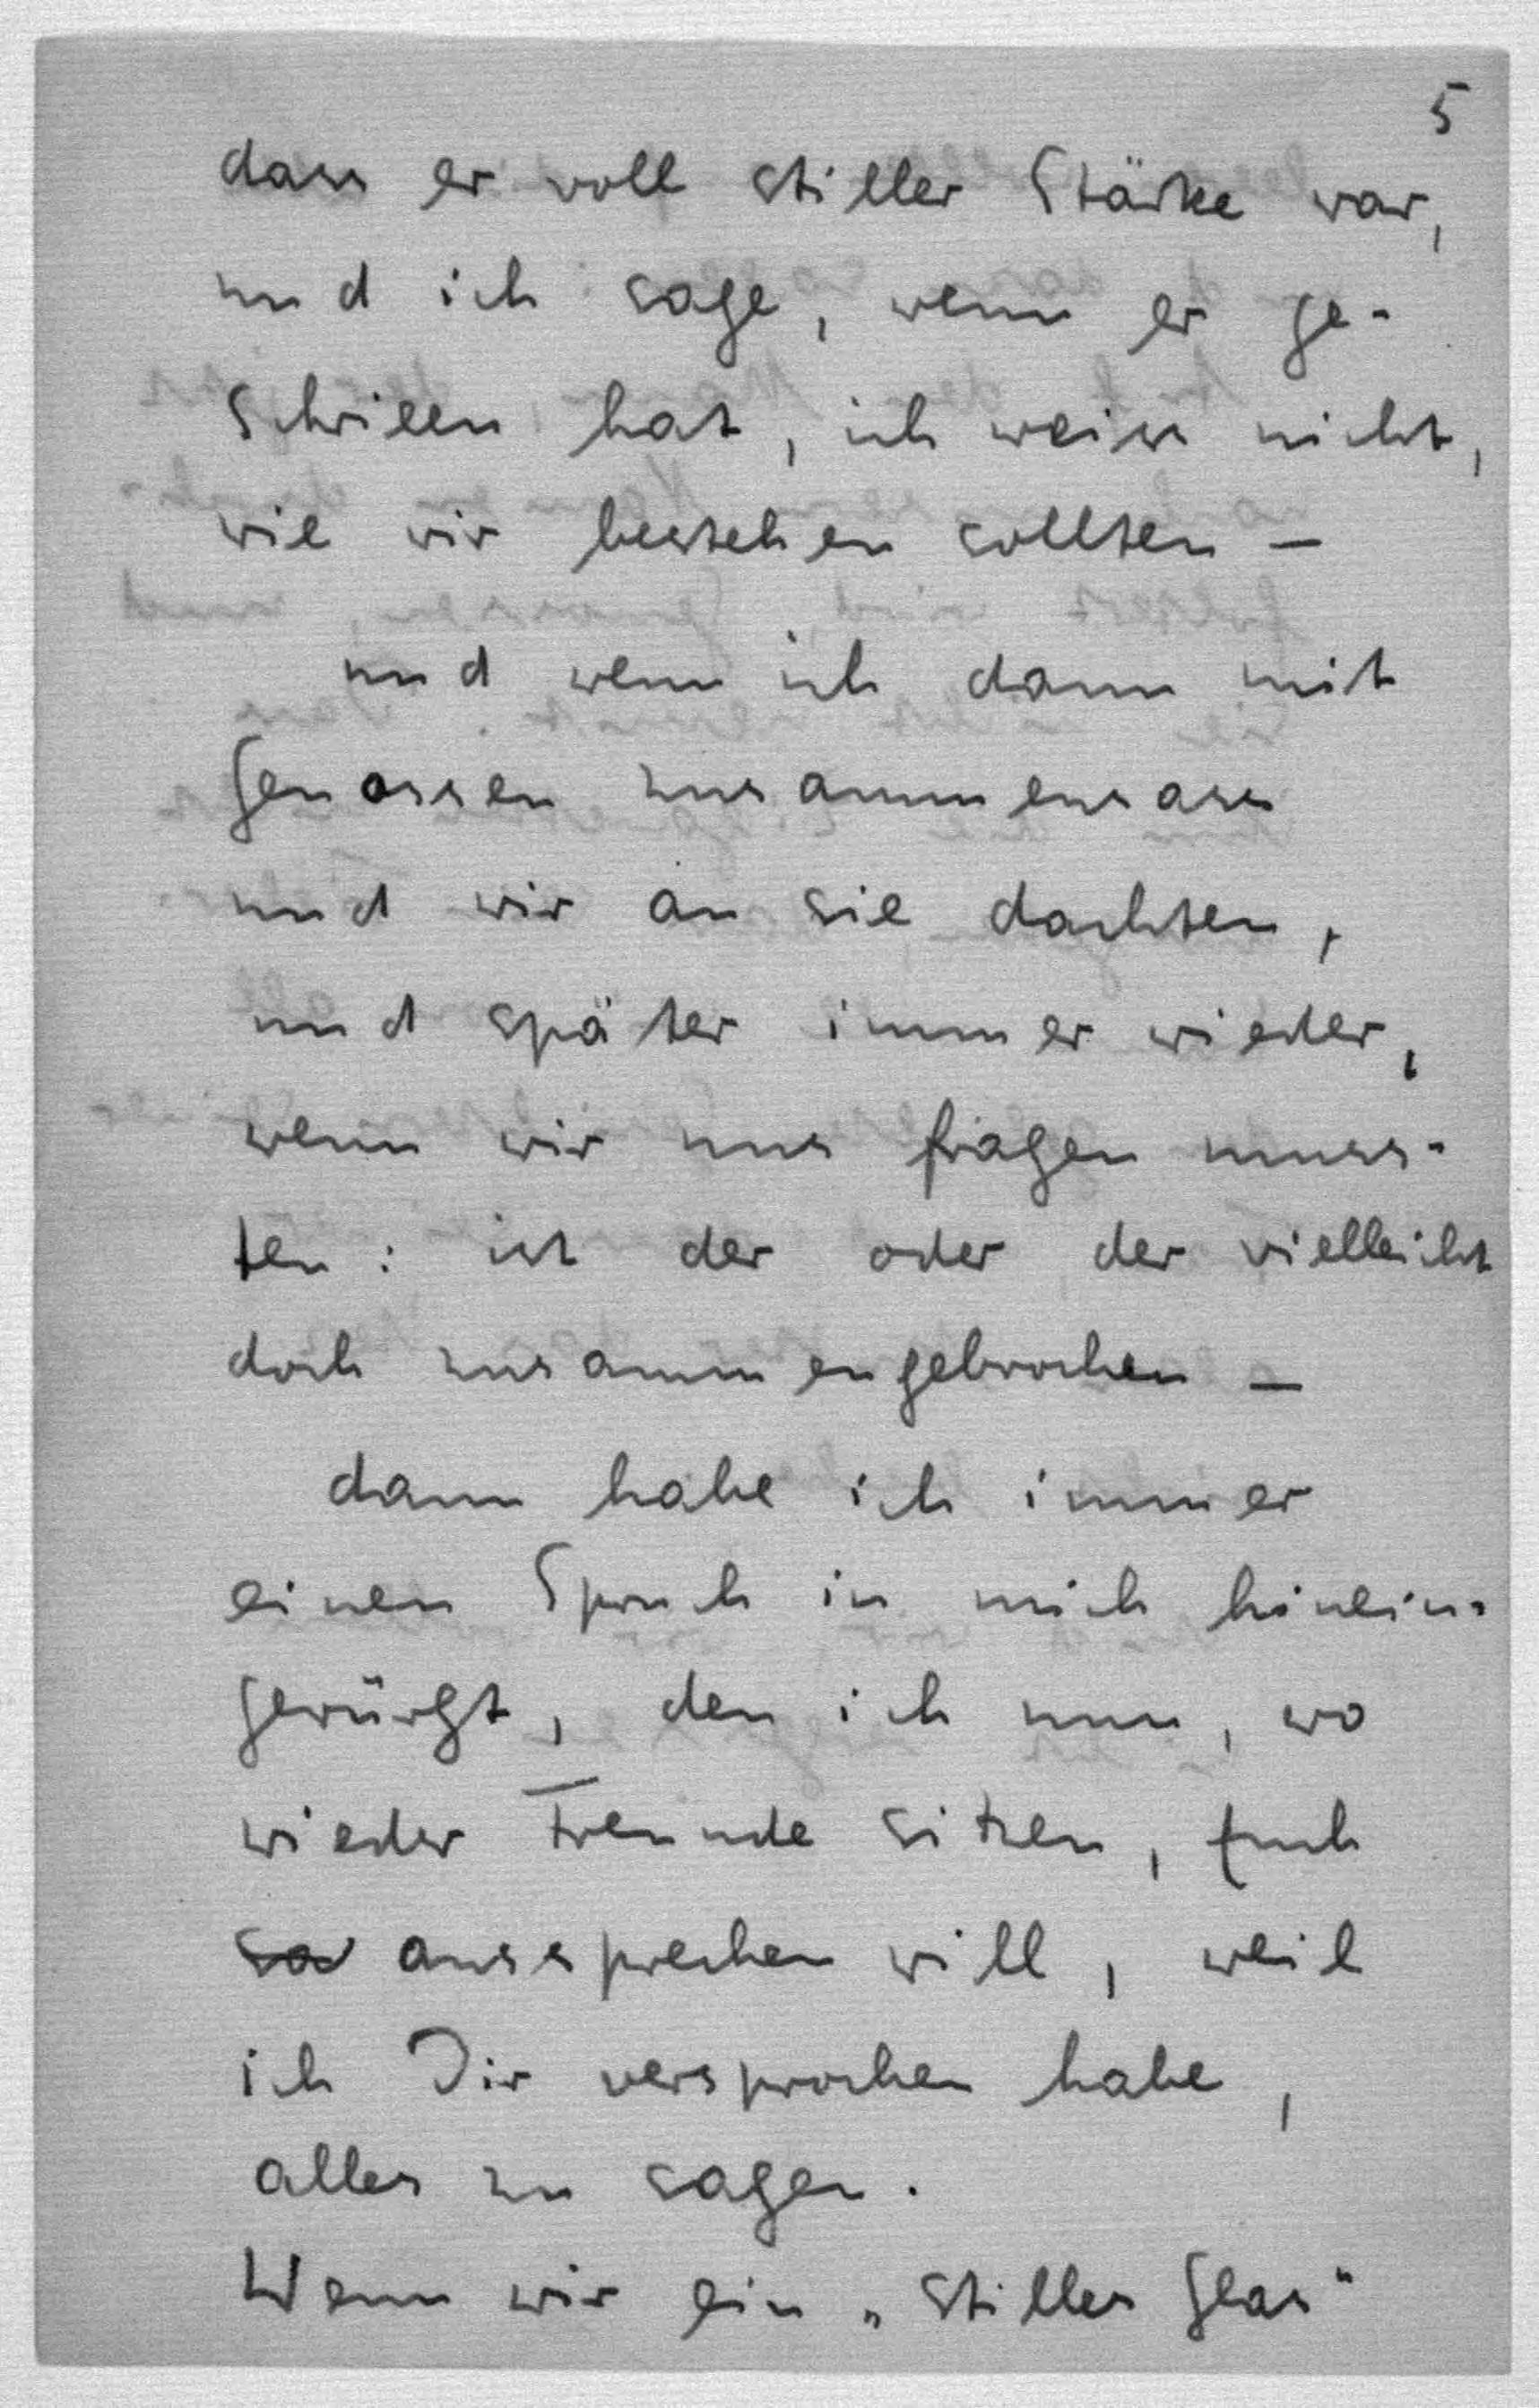 5
dass er voll stiller Stärke war,
und ich sage, wenn er ge-
schrieen hat, ich weiss nicht,
wie wir bestehen sollten –
und wenn ich dann mit
Genossen zusammensass
und wir an sie dachten,
und später immer wieder,
wenn wir uns fragen muss-
ten: ist der oder der vielleicht
doch zusammengebrochen –
dann habe ich immer
einen Spruch in mich hinein-
gewürgt, den ich nun, wo
wieder Freunde sitzen, Euch
so aussprechen will, weil
ich Dir versprochen habe,
alles zu sagen.
Wenn wir ein „stilles Glas"